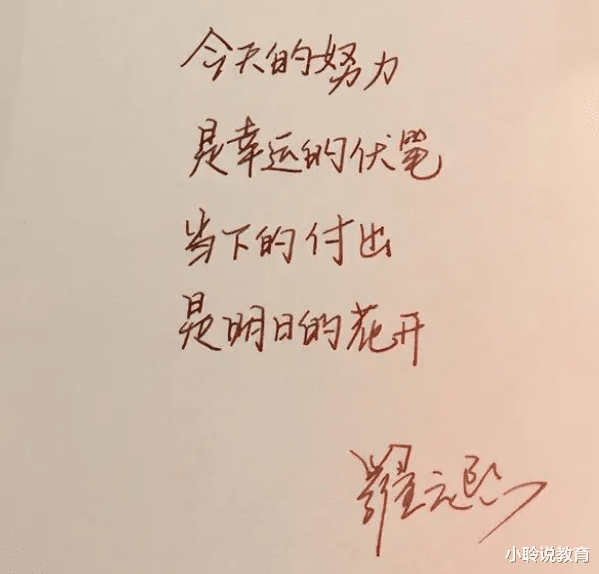 今天的努力
是幸运的伏笔
当下的付出
是明日的花开
小聆说教育